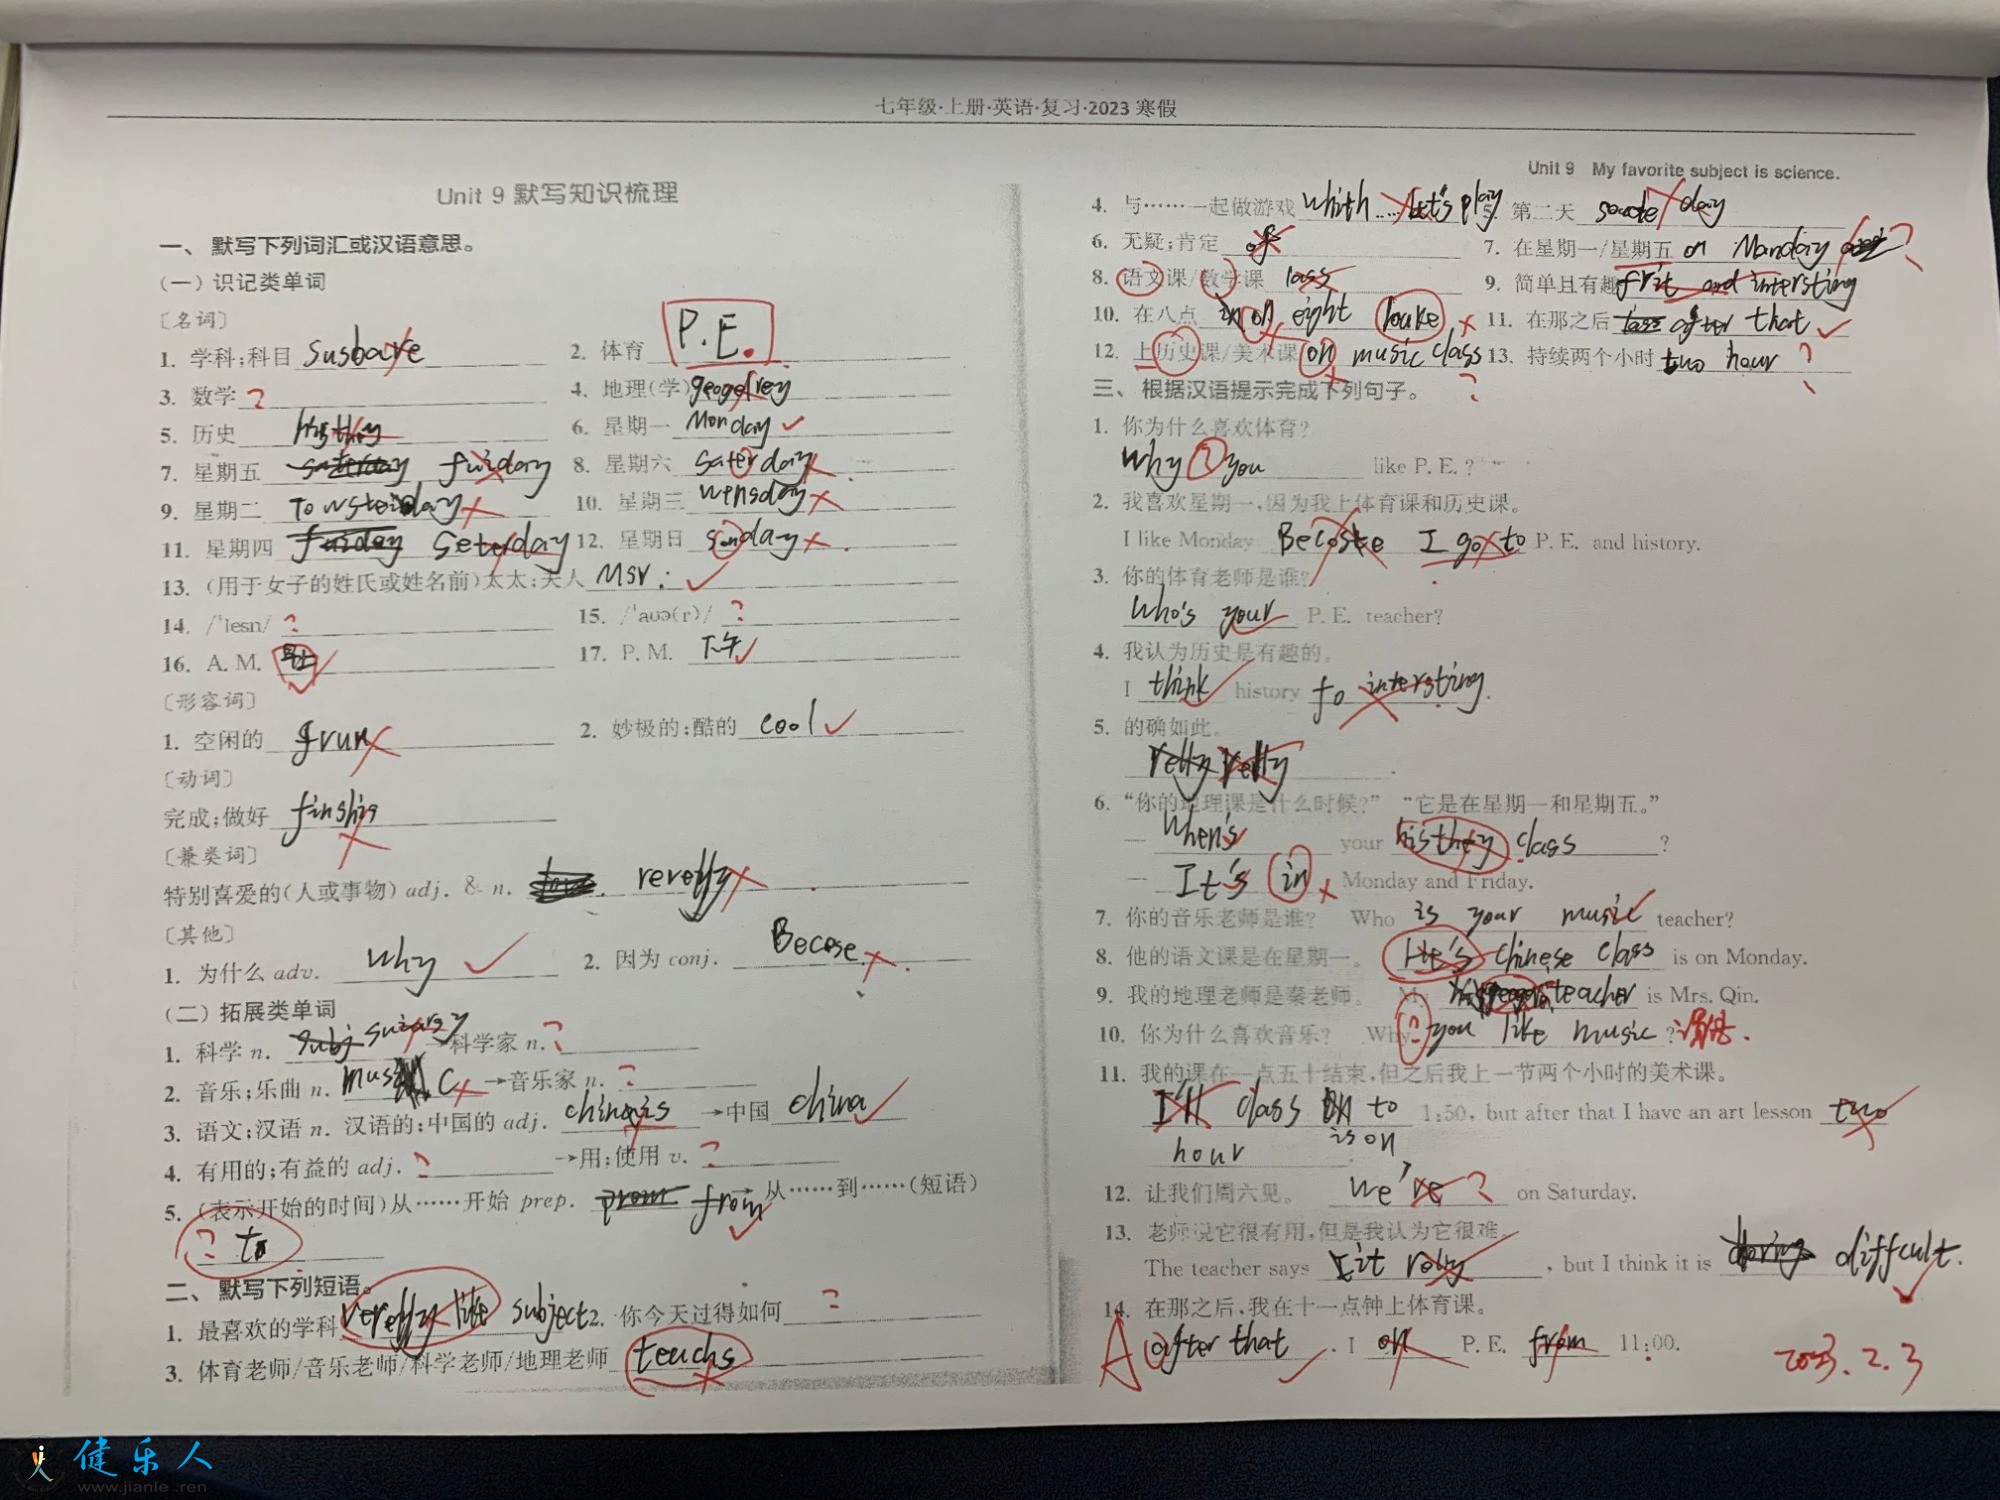 七年级·上册·英语·复习·2023 寒假
Unit 9 默写知识梳理
一、默写下列词汇或汉语意思。
(一) 识记类单词
〔名词〕
1. 学科;科目 susbare 2. 体育 P.E.
3. 数学 ? 4. 地理(学)
5. 历史 6. 星期一 Monday
7. 星期五 fuiday 8. 星期六 saterday
9. 星期二 10. 星期三 wensday
11. 星期四 fuiday Seterday 12. 星期日 sonday
13. (用于女子的姓氏或姓名前)太太;夫人 Msr.
14. /ˈlesn/ ? 15. /ˈaʊə(r)/ ?
16. A. M. 17. P. M. 下午
〔形容词〕
1. 空闲的 frun 2. 妙极的;酷的 cool
〔动词〕
完成;做好 finshis
〔兼类词〕
特别喜爱的(人或事物) adj. & n.
〔其他〕
1. 为什么 adv. why 2. 因为 conj. Becose
(二) 拓展类单词
1. 科学 n. →科学家 n. ?
2. 音乐;乐曲 n. →音乐家 n. ?
3. 语文;汉语 n. 汉语的;中国的 adj. →中国 china
4. 有用的;有益的 adj. ? →用;使用 v. ?
5. (表示开始的时间)从……开始 prep. from → 从……到……(短语)
? to
二、默写下列短语。
1. 最喜欢的学科 like subject 2. 你今天过得如何 ?
3. 体育老师/音乐老师/科学老师/地理老师 teachs
Unit 9 My favorite subject is science.
4. 与……一起做游戏 whith .... let's play 5. 第二天 day
6. 无疑;肯定 of 7. 在星期一/星期五 on Manday ?
8. 语文课/数学课 lass 9. 简单且有趣 and intersting
10. 在八点 in on eight 11. 在那之后 after that
12. 上历史课/美术课 on music class ? 13. 持续两个小时 two hour ?
三、根据汉语提示完成下列句子。
1. 你为什么喜欢体育?
Why ? you like P. E. ?
2. 我喜欢星期一,因为我上体育课和历史课。
I like Monday I go to P. E. and history.
3. 你的体育老师是谁?
Who's your P. E. teacher?
4. 我认为历史是有趣的。
I think history fo intersting.
5. 的确如此。
6. “你的地理课是什么时候?” “它是在星期一和星期五。”
— When's your class ?
— It's in Monday and Friday.
7. 你的音乐老师是谁? Who is your music teacher?
8. 他的语文课是在星期一。 He's chinese class is on Monday.
9. 我的地理老师是秦老师。 M teacher is Mrs. Qin.
10. 你为什么喜欢音乐? Why ? you like music ?
11. 我的课在一点五十结束,但之后我上一节两个小时的美术课。
class to 1:50, but after that I have an art lesson two
is on
hour
12. 让我们周六见。 we're ? on Saturday.
13. 老师说它很有用,但是我认为它很难。
The teacher says , but I think it is diffcult.
14. 在那之后,我在十一点钟上体育课。
A after that . I on P. E. from 11:00.
2023.2.3
健乐人
www.jianle.ren